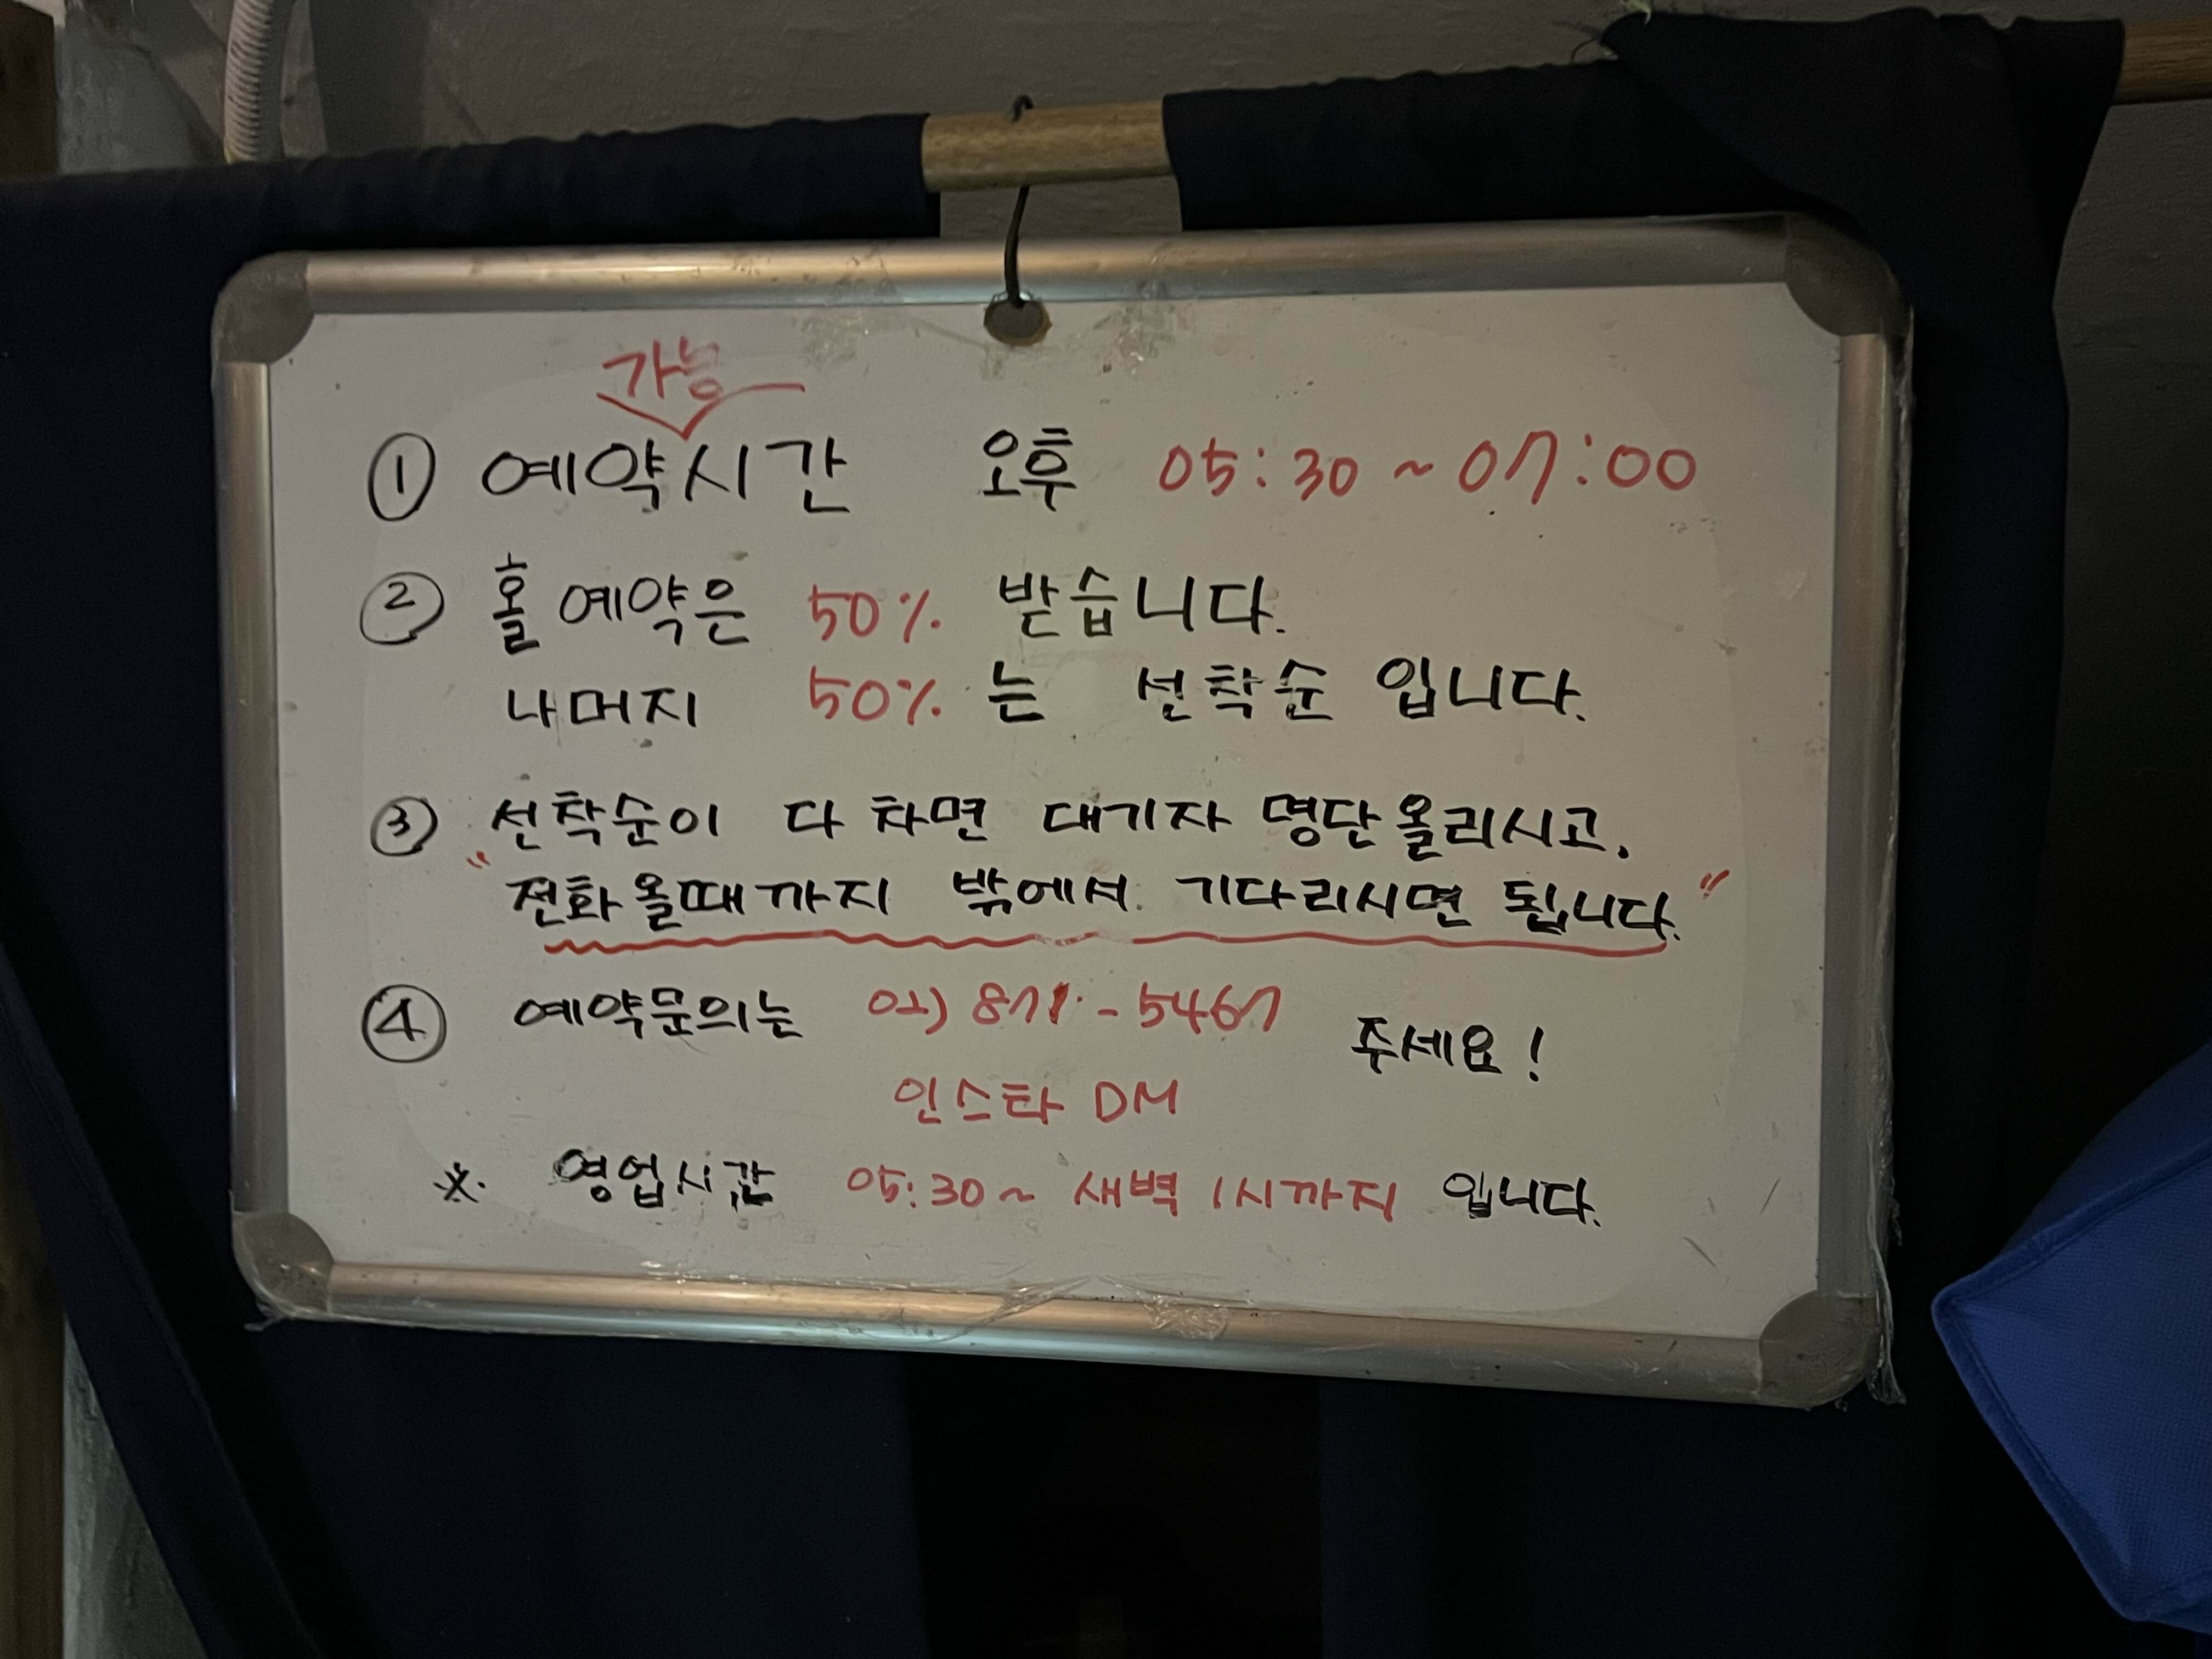 가능
① 예약시간 오후 05:30 ~ 07:00
② 홀 예약은 50% 받습니다.
나머지 50% 는 선착순 입니다.
③ 선착순이 다 차면 대기자 명단올리시고,
"전화올때까지 밖에서 기다리시면 됩니다."
④ 예약문의는 02) 871-5467 주세요!
인스타 DM
※ 영업시간 05:30 ~ 새벽 1시까지 입니다.